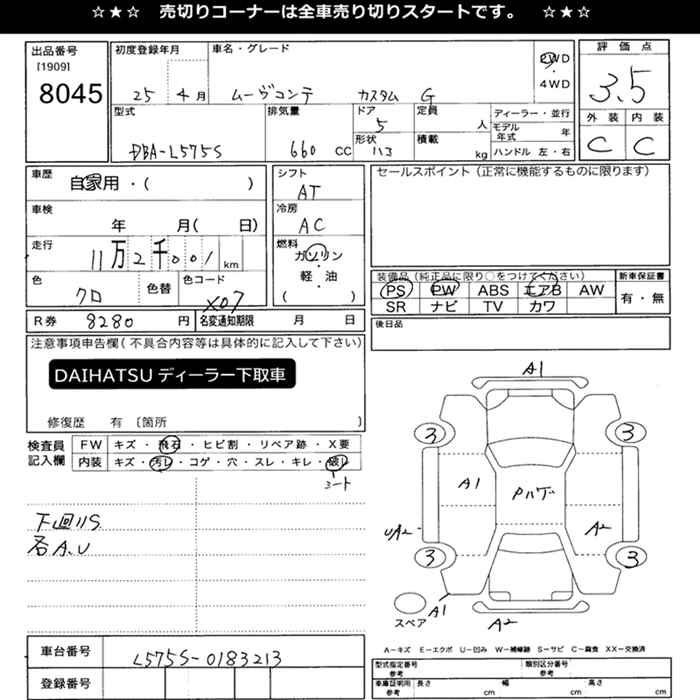 ☆★☆ 売切りコーナーは全車売り切りスタートです。 ☆★☆
出品番号
[1909]
8045
初度登録年月
25 4月
車名・グレード
ムーヴコンテ カスタム G
2WD
・
4WD
評価点
3.5
外装 内装
C C
型式
DBA-L575S
排気量
660 CC
ドア
5
形状
ハコ
定員
人
積載
kg
ディーラー・並行
モデル年式 年
ハンドル 左・右
車歴
自家用・( )
車検
年 月( 日)
走行
11万2千001 km
色
クロ
色替
色コード
X07
シフト
AT
冷房
AC
燃料
ガソリン
・
軽・油
( )
セールスポイント(正常に機能するものに限ります)
装備品(純正品に限り○をつけてください)
PS PW ABS エアB AW
SR ナビ TV カワ
新車保証書
有・無
R券 8280 円
名変通知期限 月 日
後日品
注意事項申告欄(不具合内容等は具体的に記入して下さい)
DAIHATSU ディーラー下取車
修復歴 有 〔箇所 〕
検査員
記入欄
FW キズ・飛石・ヒビ割・リペア跡・X要
内装 キズ・汚レ・コゲ・穴・スレ・キレ・破レ
シート
下廻りS
各A.U
A1
3 3
A1
A2
UA2
3 3
スペア
A1
A2
A－キズ E－エクボ U－凹み W－補修跡 S－サビ C－腐食 XX－交換済
車台番号
L575S-0183213
登録番号
型式指定番号
参考
類別区分番号
参考
車庫証明用
参考
長さ cm
幅 cm
高さ cm